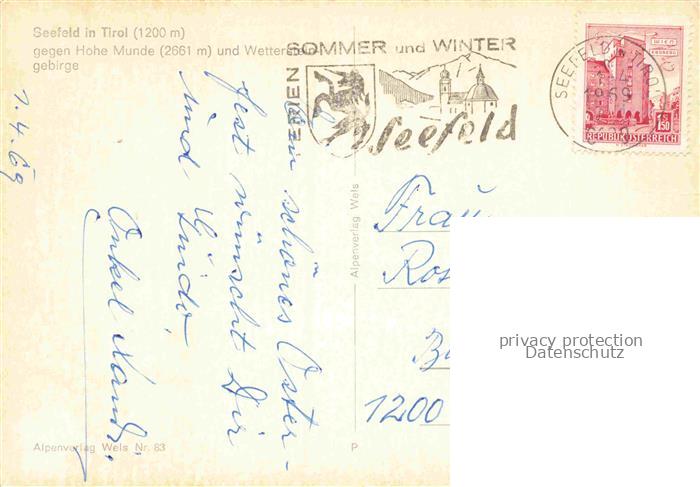 Seefeld in Tirol (1200 m)
gegen Hohe Munde (2661 m) und Wetterstein-
gebirge
FERIEN SOMMER und WINTER
Seefeld
SEEFELD IN TIROL
1.4.
1969
WIEN
ERDBERG
S 1.50
REPUBLIK ÖSTERREICH
1.4.69
Ein schönes Oster-
fest wünscht Dir
und Guido
Onkel
Alpenverlag Wels
Frau
Ros
1200
privacy protection
Datenschutz
Alpenverlag Wels Nr. 83
P